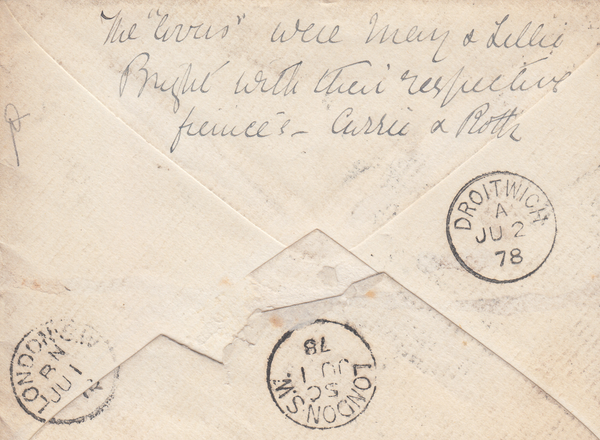 The "lovers" were May & Lillie
Bright with their respective
fiencés - Currie & Roth
DROITWICH
A
JU 2
78
LONDON
BN
JU 1
LONDON.S.W.
SC
JU 1
78